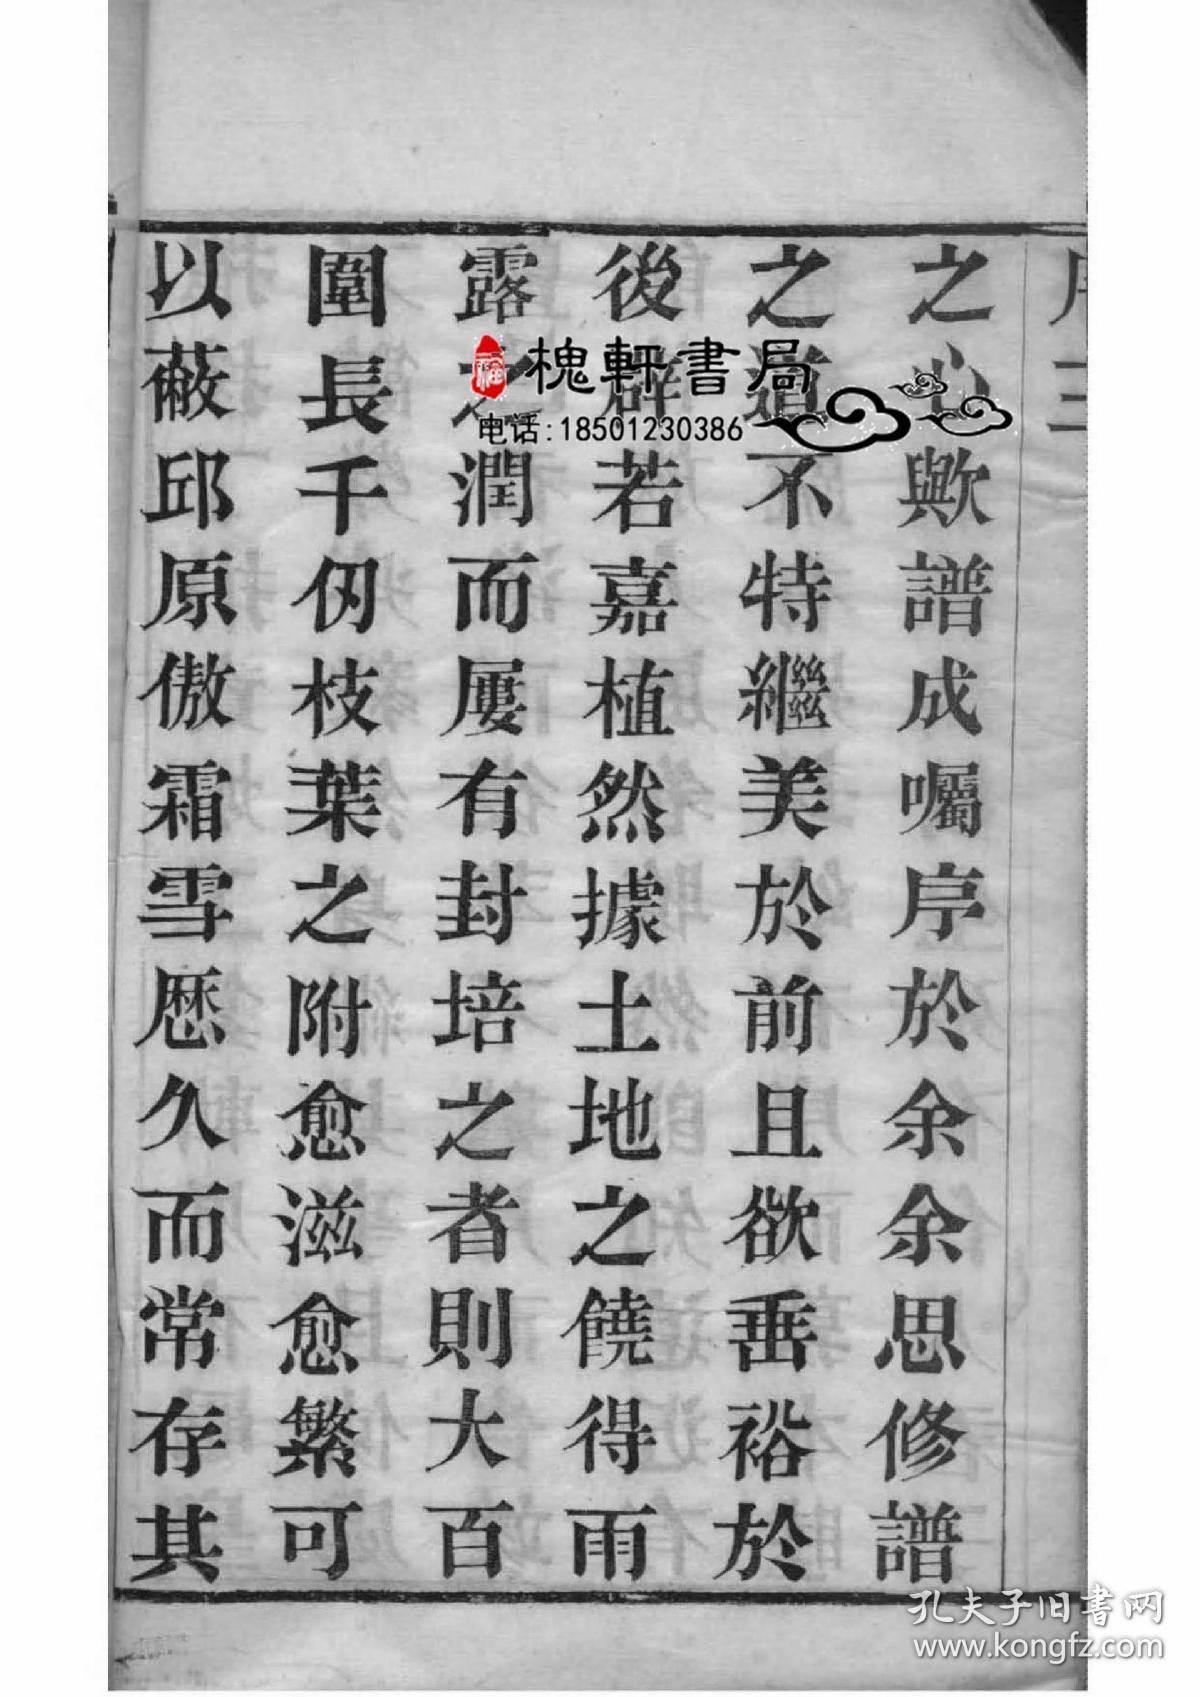 序三
之心歟譜成囑序於余余思修譜
之道不特繼美於前且欲垂裕於
後辟若嘉植然據土地之饒得雨
露之潤而屢有封培之者則大百
圍長千仞枝葉之附愈滋愈繁可
以蔽邱原傲霜雪歷久而常存其
槐軒書局
电话:18501230386
孔夫子旧书网
www.kongfz.com